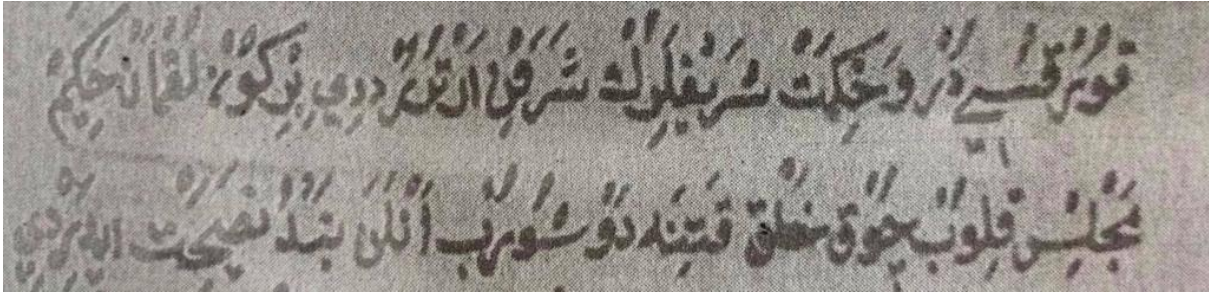 قُورْقُسِي دُرْ وَحِكْمَتْ شَرِيفْلَرُكْ شَرَفِنْ اَرْتُرُرْ دِدِي بِرْكُونْ لُقْمَانْ حَكِيمْ
مَجْلِسْ قِلُوبْ چُوقْ خَلْقْ قَتِنَه دَوْشُورُبْ اَنْلَرَ بَنْدُ نَصِيحَتْ ايدَرْدِي